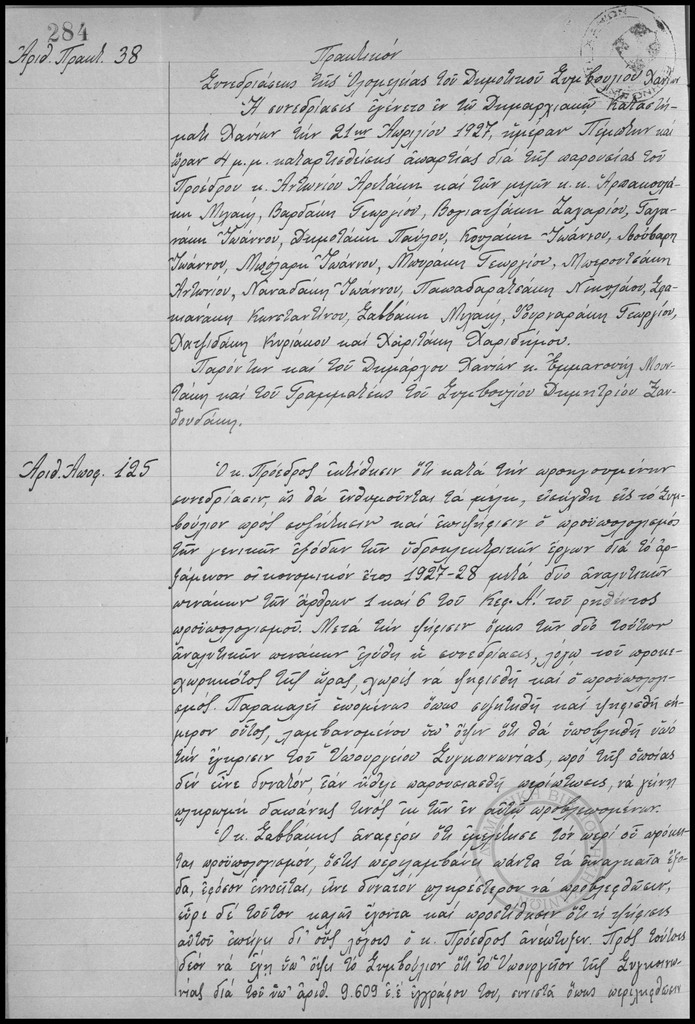 284
Ἀριθ. Πρακτ. 38
Πρακτικόν
Συνεδριάσεως τῆς Ὁλομελείας τοῦ Δημοτικοῦ Συμβουλίου Χανίων
Ἡ συνεδρίασις ἐγένετο ἐν τῷ Δημαρχιακῷ Καταστή-
ματι Χανίων τήν 21ην Ἀπριλίου 1927, ἡμέραν Πέμπτην καί
ὥραν 4 μ.μ. καταρτισθείσης ἀπαρτίας διά τῆς παρουσίας τοῦ
Προέδρου κ. Ἀντωνίου Ἀρετάκη καί τῶν μελῶν κ.κ. Ἀρπακουλά-
κη Μιχαήλ, Βαρδάκη Γεωργίου, Βογιατζάκη Ζαχαρίου, Γαγα-
νάκη Ἰωάννου, Δημοτάκη Παύλου, Κουλάκη Ἰωάννου,
Ἰωάννου, Μπόλαρη Ἰωάννου, Μπυράκη Γεωργίου, Μπερουτσάκη
Ἀντωνίου, Ναναδάκη Ἰωάννου, Παπαδαρατσάκη Νικολάου, Σερ-
κιανάκη Κωνσταντίνου, Σαββάκη Μιχαήλ, Γεωργίου,
Χατζιδάκη Κυριάκου καί Χαριτάκη Χαριδήμου.
Παρόντων καί τοῦ Δημάρχου Χανίων κ. Ἐμμανουήλ Μουν-
τάκη καί τοῦ Γραμματέως τοῦ Συμβουλίου Δημητρίου Ξαν-
θουδάκη.
Ἀριθ. Ἀποφ. 125
Ὁ κ. Πρόεδρος ἐκτίθησιν ὅτι κατά τήν προηγουμένην
συνεδρίασιν, ὡς θά ἐνθυμοῦνται τά μέλη, εἰσήχθη εἰς τό Συμ-
βούλιον πρός συζήτησιν καί ἐπιψήφισιν ὁ προϋπολογισμός
τῶν γενικῶν ἐξόδων τῶν ὑδροηλεκτρικῶν ἔργων διά τό ἀρ-
ξάμενον οἰκονομικόν ἔτος 1927-28 μετά δύο ἀναλυτικῶν
πινάκων τῶν ἄρθρων 1 καί 6 τοῦ Κεφ. Α! τοῦ ρηθέντος
προϋπολογισμοῦ. Μετά τήν ψήφισιν ὅμως τῶν δύο τούτων
ἀναλυτικῶν πινάκων ἐλύθη ἡ συνεδρίασις, λόγῳ τοῦ προκε-
χωρηκότος τῆς ὥρας, χωρίς νά ψηφισθῇ καί ὁ προϋπολογι-
σμός. Παρακαλεῖ ἑπομένως ὅπως συζητηθῇ καί ψηφισθῇ σή-
μερον οὗτος, λαμβανομένου ὑπ' ὄψιν ὅτι θά ὑποβληθῇ ὑπό
τήν ἔγκρισιν τοῦ Ὑπουργείου Συγκοινωνίας, πρό τῆς ὁποίας
δέν εἶνε δυνατόν, ἐάν ἤθελε παρουσιασθῇ περίπτωσις, νά γείνῃ
πληρωμή δαπάνης τινός ἐκ τῶν ἐν αὐτῷ προβλεπομένων.
Ὁ κ. Σαββάκης ἀναφέρει ὅτι ἐμελέτησε τόν περί οὗ πρόκει-
ται προϋπολογισμόν, ὅστις περιλαμβάνει πάντα τά ἀναγκαῖα ἔξο-
δα, ἐφόσον ἐννοεῖται, εἶνε δυνατόν πληρέστερον νά προβλεφθῶσιν,
εὗρε δέ τοῦτον καλῶς ἔχοντα καί προστίθησιν ὅτι ἡ ψήφισις
αὐτοῦ ἐπείγει δι' οὕς λόγους ὁ κ. Πρόεδρος ἀνέπτυξεν. Πρός τούτοις
δέον νά ἔχῃ ὑπ' ὄψει τό Συμβούλιον ὅτι τό Ὑπουργεῖον τῆς Συγκοινω-
νίας διά τοῦ ὑπ' ἀριθ. 9.609 ἐ.ἔ ἐγγράφου του, συνιστᾷ ὅπως περιληφθῶσιν